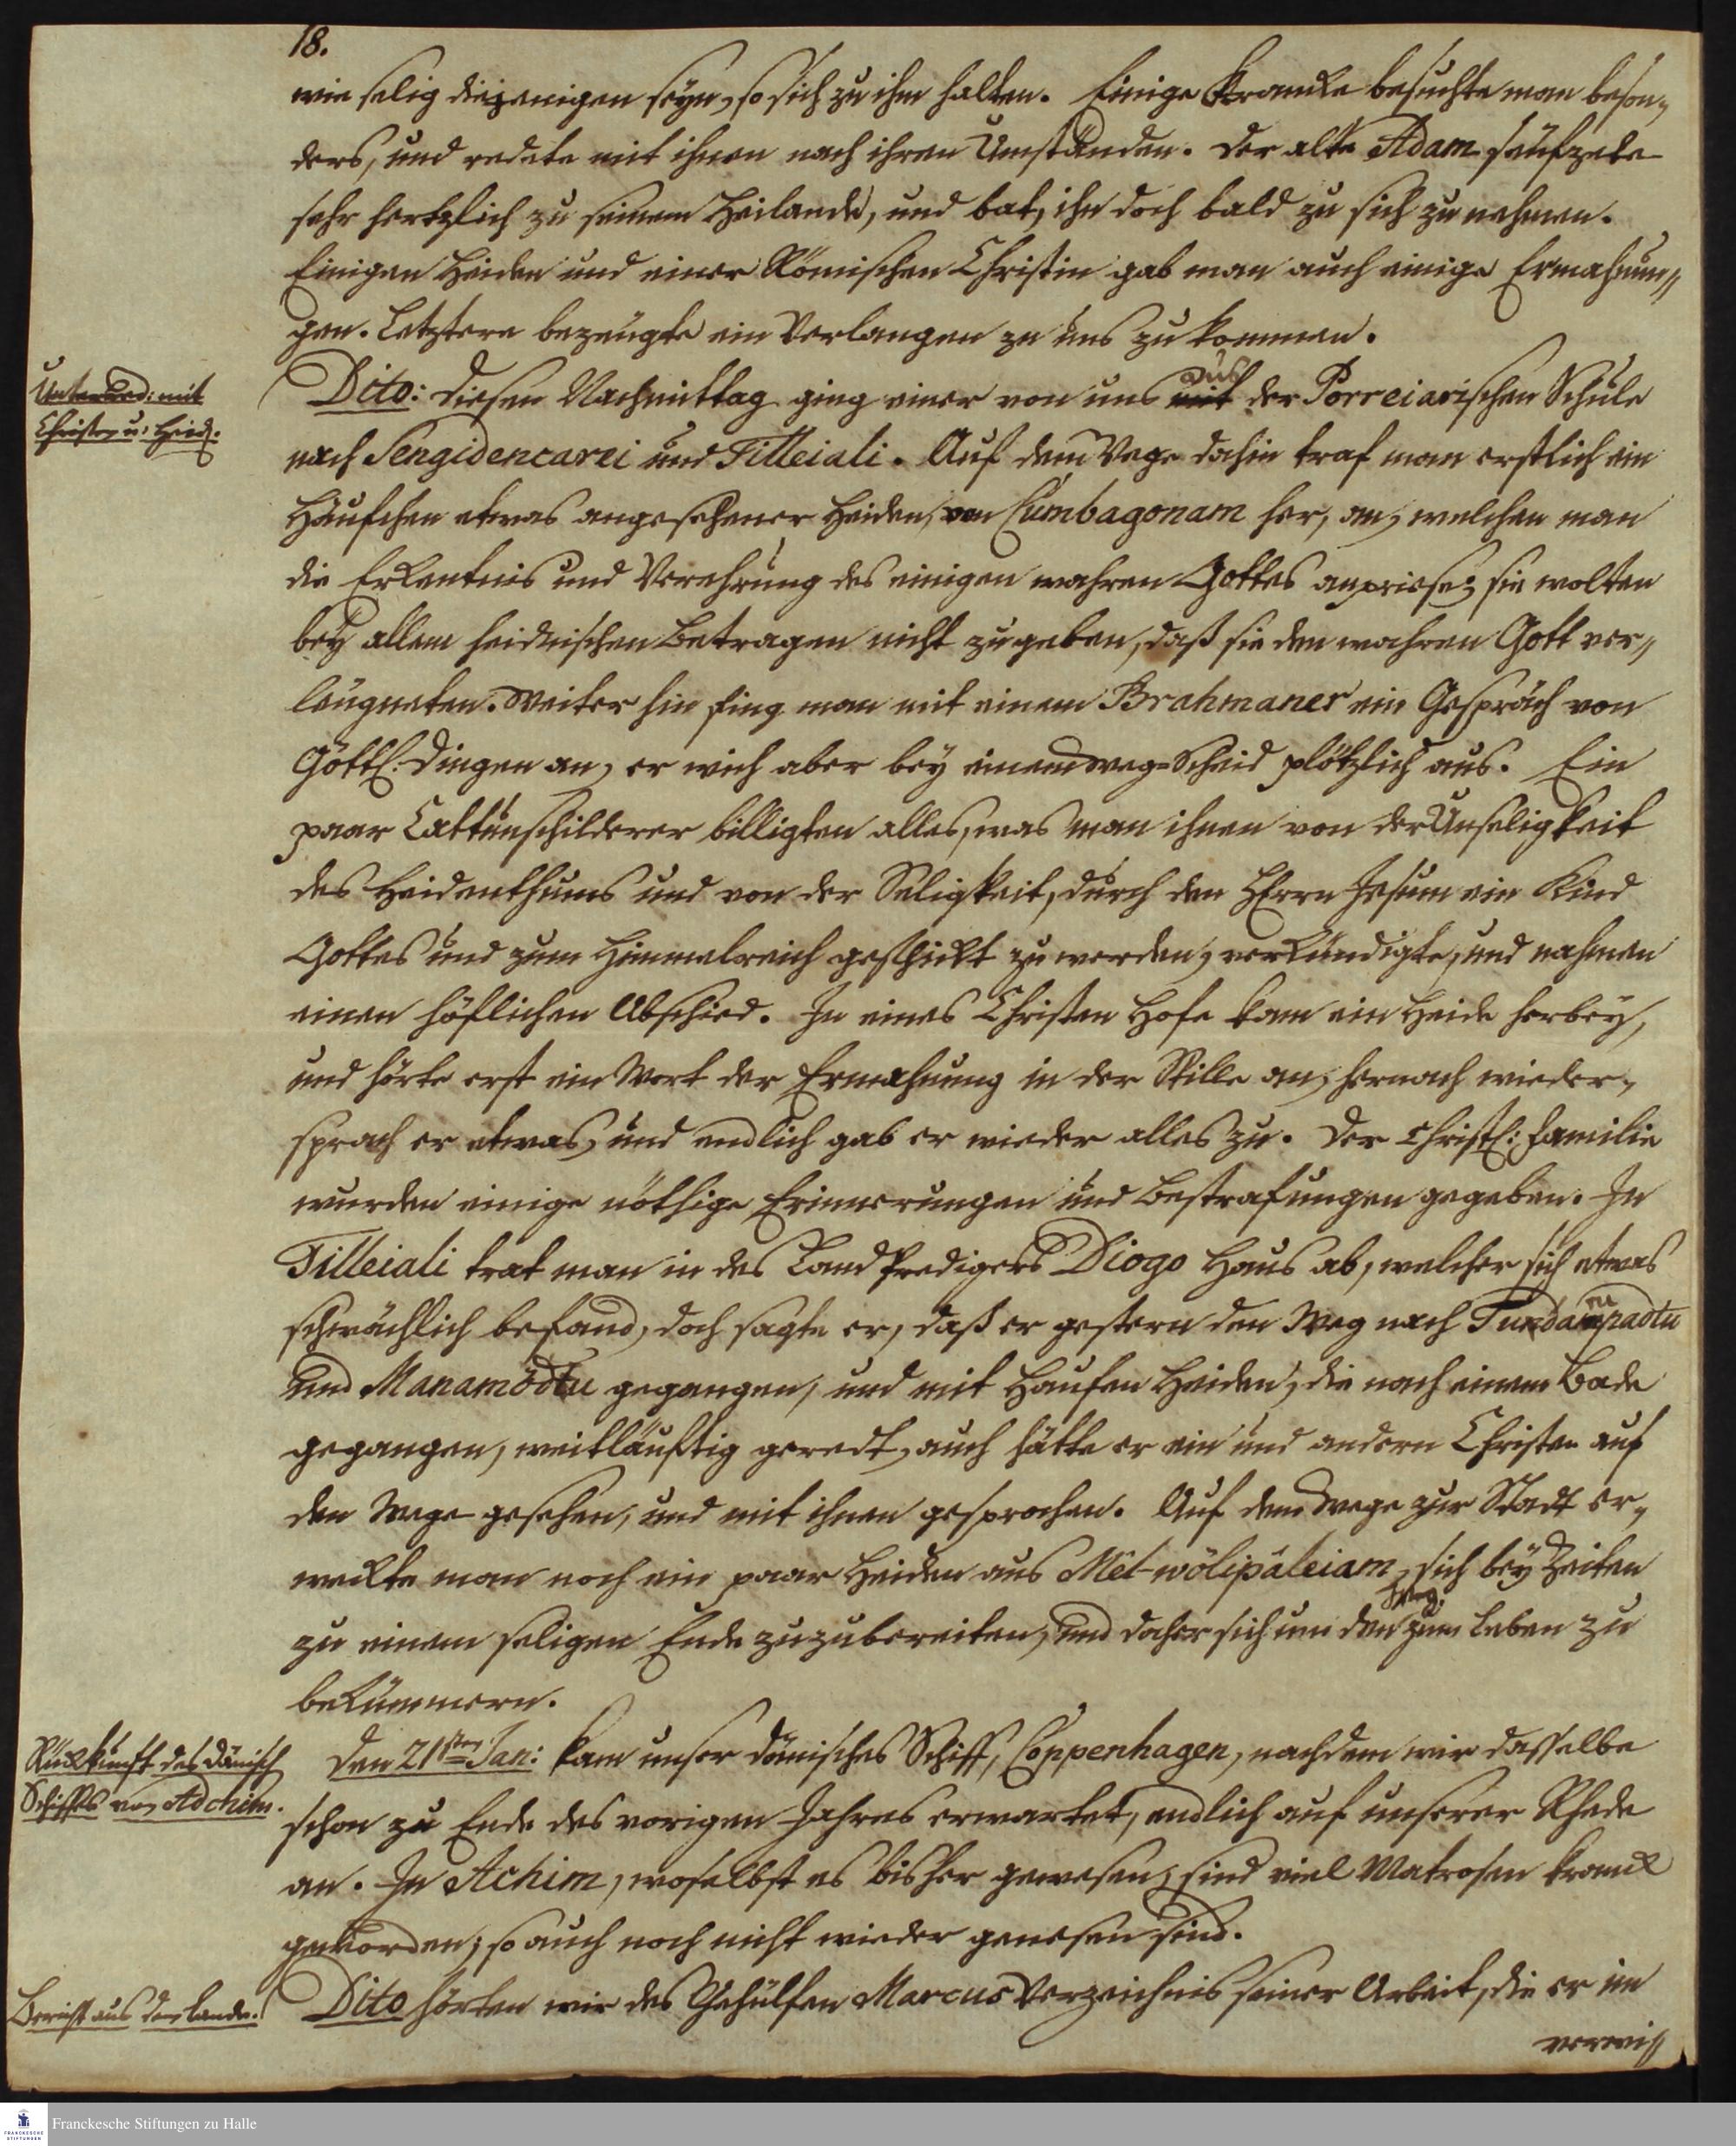 18.
wie selig diejenigen seyn, so sich zu ihm halten. Einige Krancke besuchte man beson-
ders, und redete mit ihnen nach ihren Umständen. Der alte Adam seufzete
sehr hertzlich zu seinem Heilande, und bat, ihn doch bald zu sich zu nehmen.
Einigen Heiden und einer Römischen Christin gab man auch einige Ermahnun-
gen. Letztere bezeugte ein Verlangen zu uns zu kommen.
Unterred: mit
Christen u: Heid.
Dito: Diesen Nachmittag ging einer von uns mit aus der Porreiarischen Schule
nach Sengidencarei und Tilleiali. Auf dem Wege dahin traf man erstlich ein
Häufchen etwas angesehener Heiden, von Cumbagonam her, an, welchen man
die Erkentnis und Verehrung des einigen wahren Gottes anpriese; sie wolten
bey allem heidnischen Betragen nicht zugeben, daß sie den wahren Gott ver-
läugneten. Weiter hin fing man mit einem Brahmaner ein Gespräch von
Göttl: Dingen an, er wich aber bey einem Weg-Scheid plötzlich aus. Ein
paar Cattunschilderer billigten alles, was man ihnen von der Unseligkeit
des Heidenthums und von der Seligkeit, durch den HErrn Jesum ein Kind
Gottes und zum Himmelreich geschickt zu werden, verkündigte, und nahmen
einen höflichen Abschied. In eines Christen Hofe kam ein Heide herbey,
und hörte erst ein Wort der Ermahnung in der Stille an, hernach wieder-
sprach er etwas, und endlich gab er wieder alles zu. Der Christl: Familie
wurden einige nöthige Erinnerungen und Bestrafungen gegeben. In
Tilleiali trat man in des Land Predigers Diogo Haus ab, welcher sich etwas
schwächlich befand, doch sagte er, daß er gestern den Weg nach Tundampadtu
und Manamödtu gegangen, und mit Haufen Heiden, die nach einem Bade
gegangen, weitläuftig geredt, auch hätte er ein und andern Christen auf
den Wege gesehen, und mit ihnen gesprochen. Auf dem Wege zur Stadt er-
weckte man noch ein paar Heiden aus Mêl-wölipâleiam, sich bey Zeiten
zu einem seligen Ende zuzubereiten, und daher sich um den Weg zum Leben zu
bekümmern.
Rückkunft des Dänisch
Schiffes von Adchim.
Den 21sten Jan: kam unser dänisches Schiff, Coppenhagen, nachdem wir dasselbe
schon zu Ende des vorigen Jahres erwartet, endlich auf unserer Rhede
an. In Achim, woselbst es bisher gewesen, sind viel Matrosen kranck
geworden; so auch noch nicht wieder genesen sind.
Bericht aus dem Lande.
Dito hörten wir des Gehülfen Marcus Verzeichnis seiner Arbeit, die er im